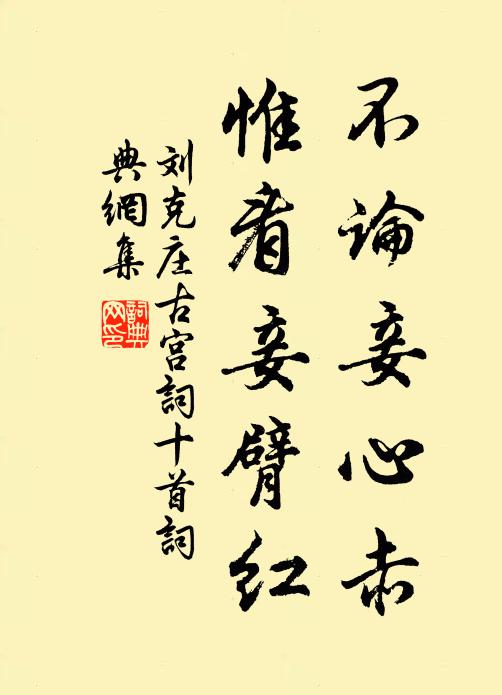 不論妾心赤
惟看妾臂紅
刘克庄古宫詞十首詞
典網集
詞典网印